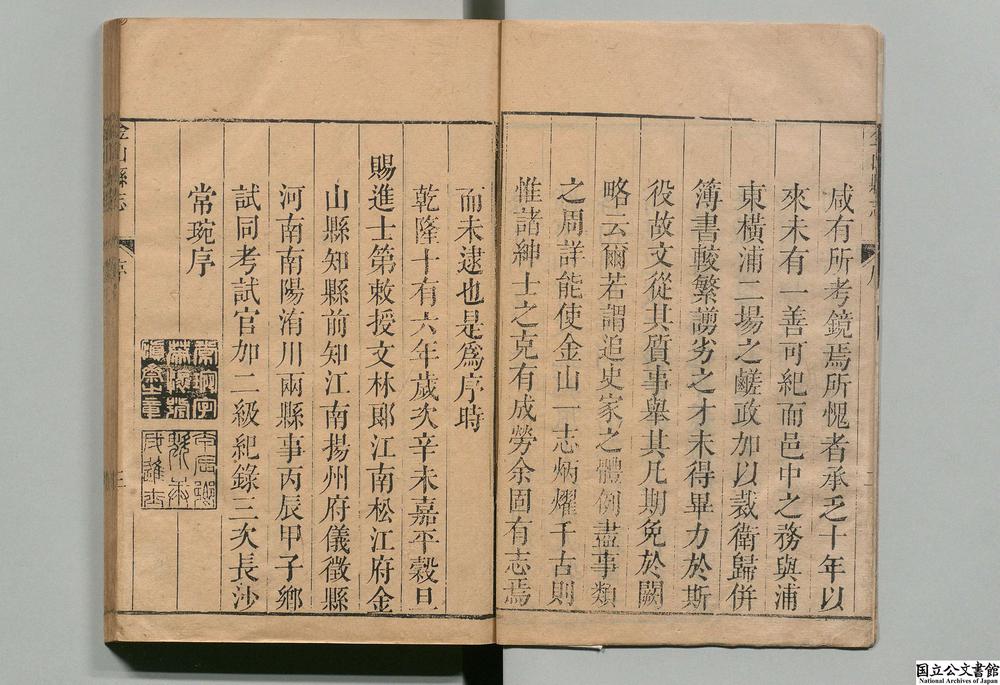 咸有所考鏡焉所愧者承乏十年以
來未有一善可紀而邑中之務與浦
東橫浦二場之鹺政加以裁衛歸併
簿書較繁謭劣之才未得畢力於斯
役故文從其質事舉其凡期免於闕
略云爾若謂追史家之體例盡事類
之周詳能使金山一志炳燿千古則
惟諸紳士之克有成勞余固有志焉
而未逮也是爲序時
乾隆十有六年歲次辛未嘉平穀旦
賜進士第敕授文林郎江南松江府金
山縣知縣前知江南揚州府儀徵縣
河南南陽淯川兩縣事丙辰甲子鄉
試同考試官加二級紀錄三次長沙
常琬序
金山縣志
序
三
国立公文書館
National Archives of Japan